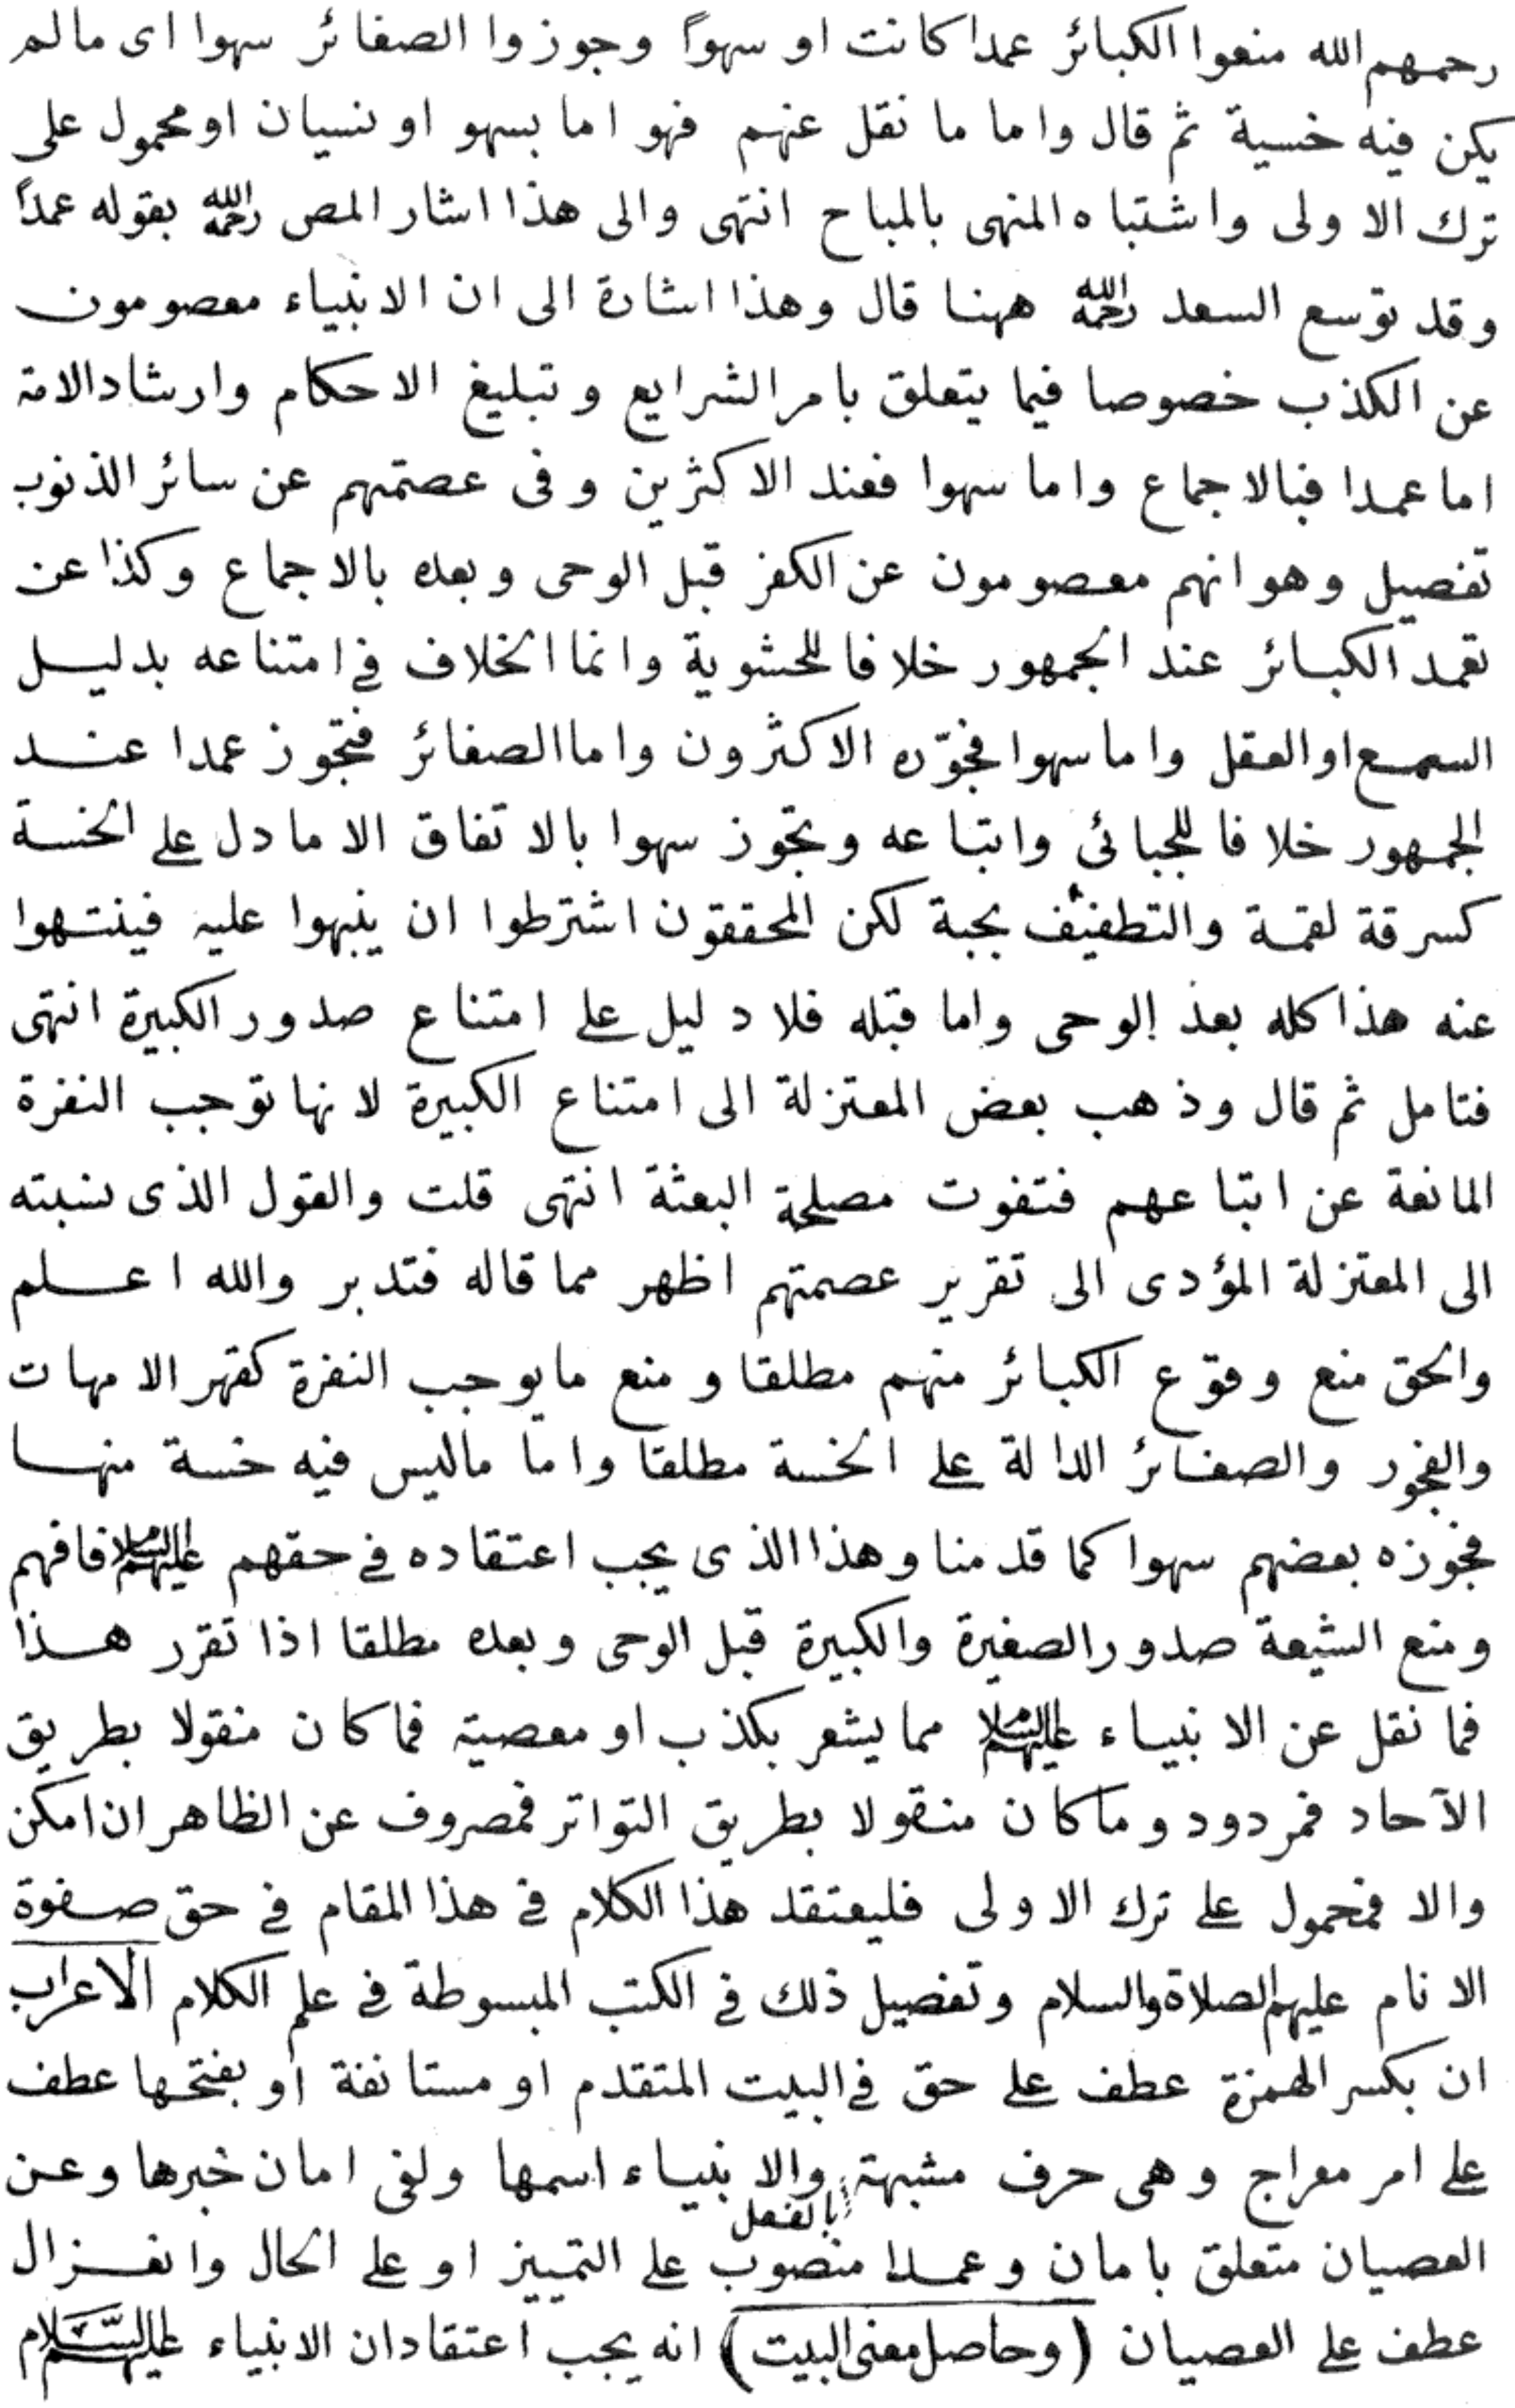 رحمهم الله منعوا الكبائر عمدا كانت او سهوا وجوزوا الصغائر سهوا اى مالم
يكن فيه خسية ثم قال واما ما نقل عنهم فهو اما بسهو او نسيان او محمول على
ترك الاولى واشتباه المنهى بالمباح انتهى والى هذا اشار المص رحمه الله بقوله عمداً
وقد توسع السعد رحمه الله ههنا قال وهذا اشارة الى ان الانبياء معصومون
عن الكذب خصوصا فيما يتعلق بامر الشرايع وتبليغ الاحكام وارشاد الامة
اما عمدا فبالاجماع واما سهوا فعند الاكثرين وفى عصمتهم عن سائر الذنوب
تفصيل وهو انهم معصومون عن الكفر قبل الوحى وبعده بالاجماع وكذا عن
تعمد الكبائر عند الجمهور خلافا للحشوية وانما الخلاف فى امتناعه بدليل
السمع او العقل واما سهوا فجوّزه الاكثرون واما الصغائر فتجوز عمدا عند
الجمهور خلافا للجبائى واتباعه وتجوز سهوا بالاتفاق الا ما دل على الخسة
كسرقة لقمة والتطفيف بحبة لكن المحققون اشترطوا ان ينبهوا عليه فينتهوا
عنه هذا كله بعد الوحى واما قبله فلا دليل على امتناع صدور الكبيرة انتهى
فتامل ثم قال وذهب بعض المعتزلة الى امتناع الكبيرة لانها توجب النفرة
المانعة عن اتباعهم فتفوت مصلحة البعثة انتهى قلت والقول الذى نسبته
الى المعتزلة المؤدى الى تقرير عصمتهم اظهر مما قاله فتدبر والله اعلم
والحق منع وقوع الكبائر منهم مطلقا ومنع ما يوجب النفرة كقهر الامهات
والفجور والصغائر الدالة على الخسة مطلقا واما ماليس فيه خسة منها
فجوزه بعضهم سهوا كما قدمنا وهذا الذى يجب اعتقاده فى حقهم عليهم السلام فافهم
ومنع الشيعة صدور الصغيرة والكبيرة قبل الوحى وبعده مطلقا اذا تقرر هذا
فما نقل عن الانبياء عليهم السلام مما يشعر بكذب او معصية فما كان منقولا بطريق
الآحاد فمردود وما كان منقولا بطريق التواتر فمصروف عن الظاهر ان امكن
والا فمحمول على ترك الاولى فليعتقد هذا الكلام فى هذا المقام فى حق صفوة
الانام عليهم الصلاة والسلام وتفصيل ذلك فى الكتب المبسوطة فى علم الكلام الاعراب
ان بكسر الهمزة عطف على حق فى البيت المتقدم او مستانفة او بفتحها عطف
على امر معراج وهى حرف مشبهة بالفعل والانبياء اسمها ولفى امان خبرها وعن
العصيان متعلق بامان وعمدا منصوب على التمييز او على الحال وانعزال
عطف على العصيان (وحاصل معنى البيت) انه يجب اعتقاد ان الانبياء عليهم السلام